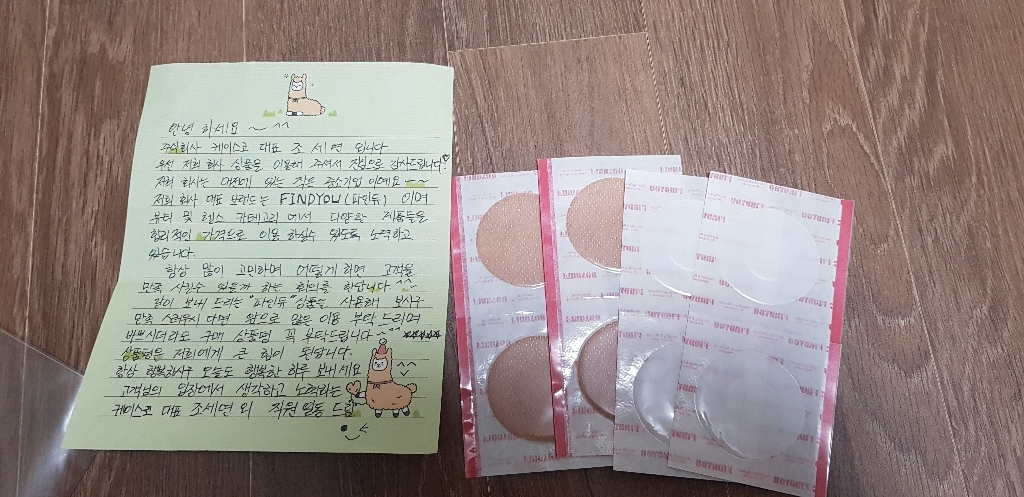 안녕 하세요 ~ ^^
주식회사 케이스코 대표 조세연 입니다
우선 저희 회사 상품을 이용해 주셔서 진심으로 감사드립니다.
저희 회사는 대전에 있는 작은 중소기업 이에요 ~~
저희 회사 대표 브랜드는 FINDYOU (파인듀) 이며
뷰티 및 헬스 카테고리 에서 다양한 제품들을
합리적인 가격으로 이용 하실수 있도록 노력하고
있습니다.
항상 많이 고민하며 어떻게 하면 고객을
만족 시킬수 있을까 하는 회의를 한답니다 ^^
같이 보내 드리는 "파인듀" 상품도 사용해 보시구
만족 스러우시 다면 앞으로 많은 이용 부탁 드리며
바쁘시더라도 구매 상품평 꼭 부탁드립니다 ^^ ★★★★★
상품평은 저희에게 큰 힘이 된답니다.
항상 행복하시구 오늘도 행복한 하루 보내세요 ^^
고객님의 입장에서 생각하고 노력하는
케이스코 대표 조세연 외 직원일동 드림
FINDYOU